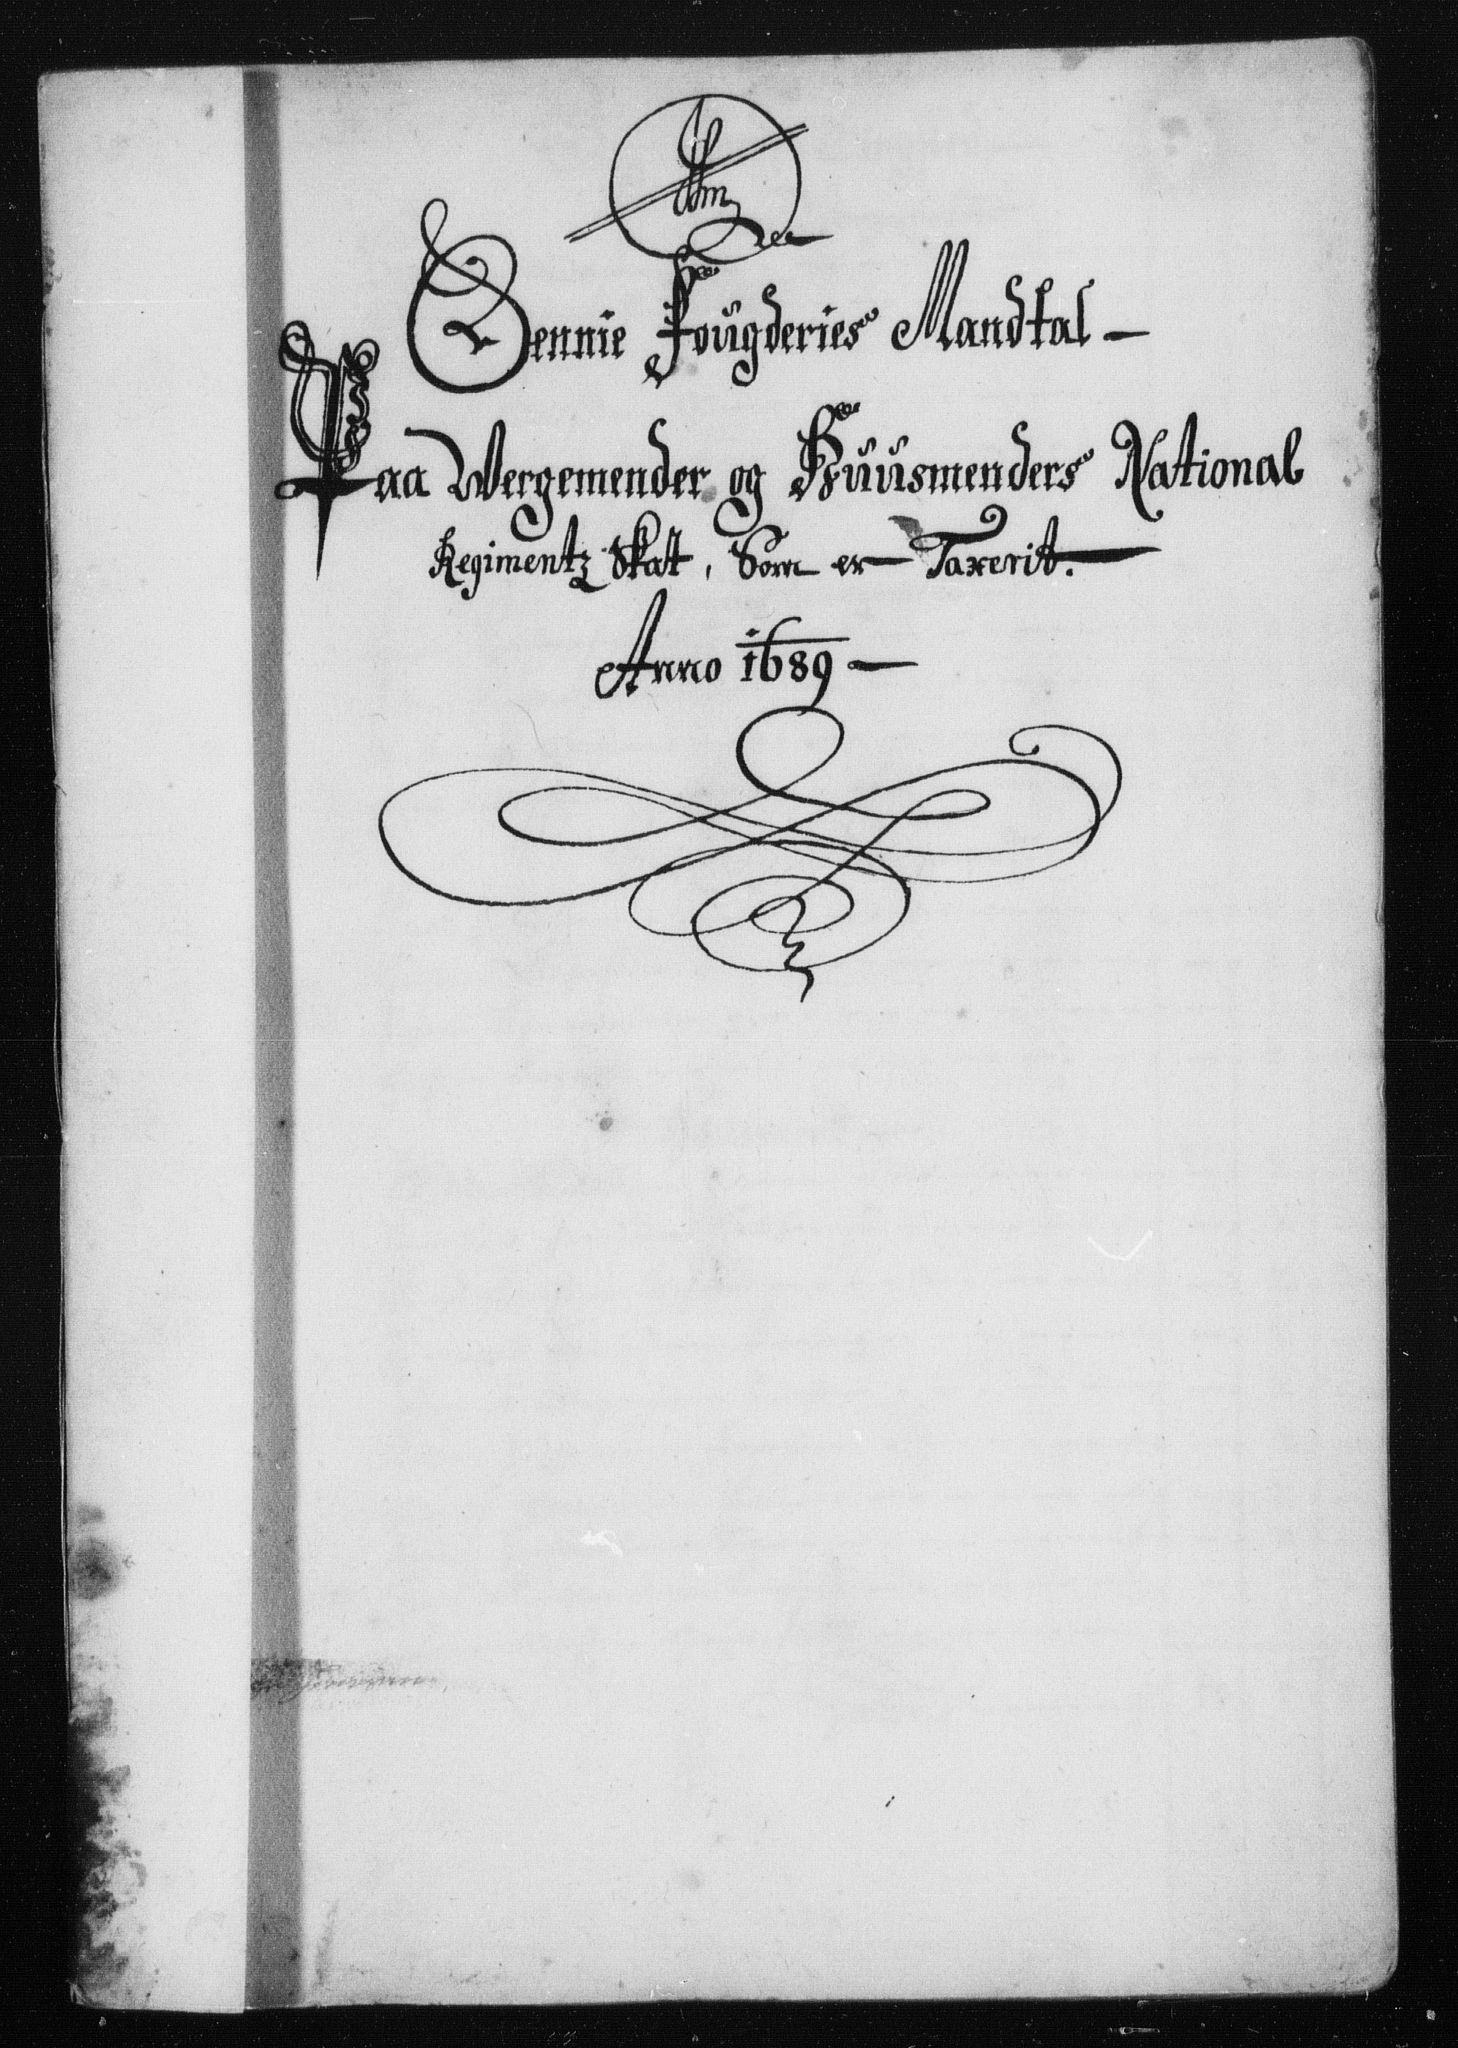 Sennie Fougderies Mandtal
Paa Wergemender og Huusmenders National
Regimentz Skat, Som er Taxerit.
Anno 1689